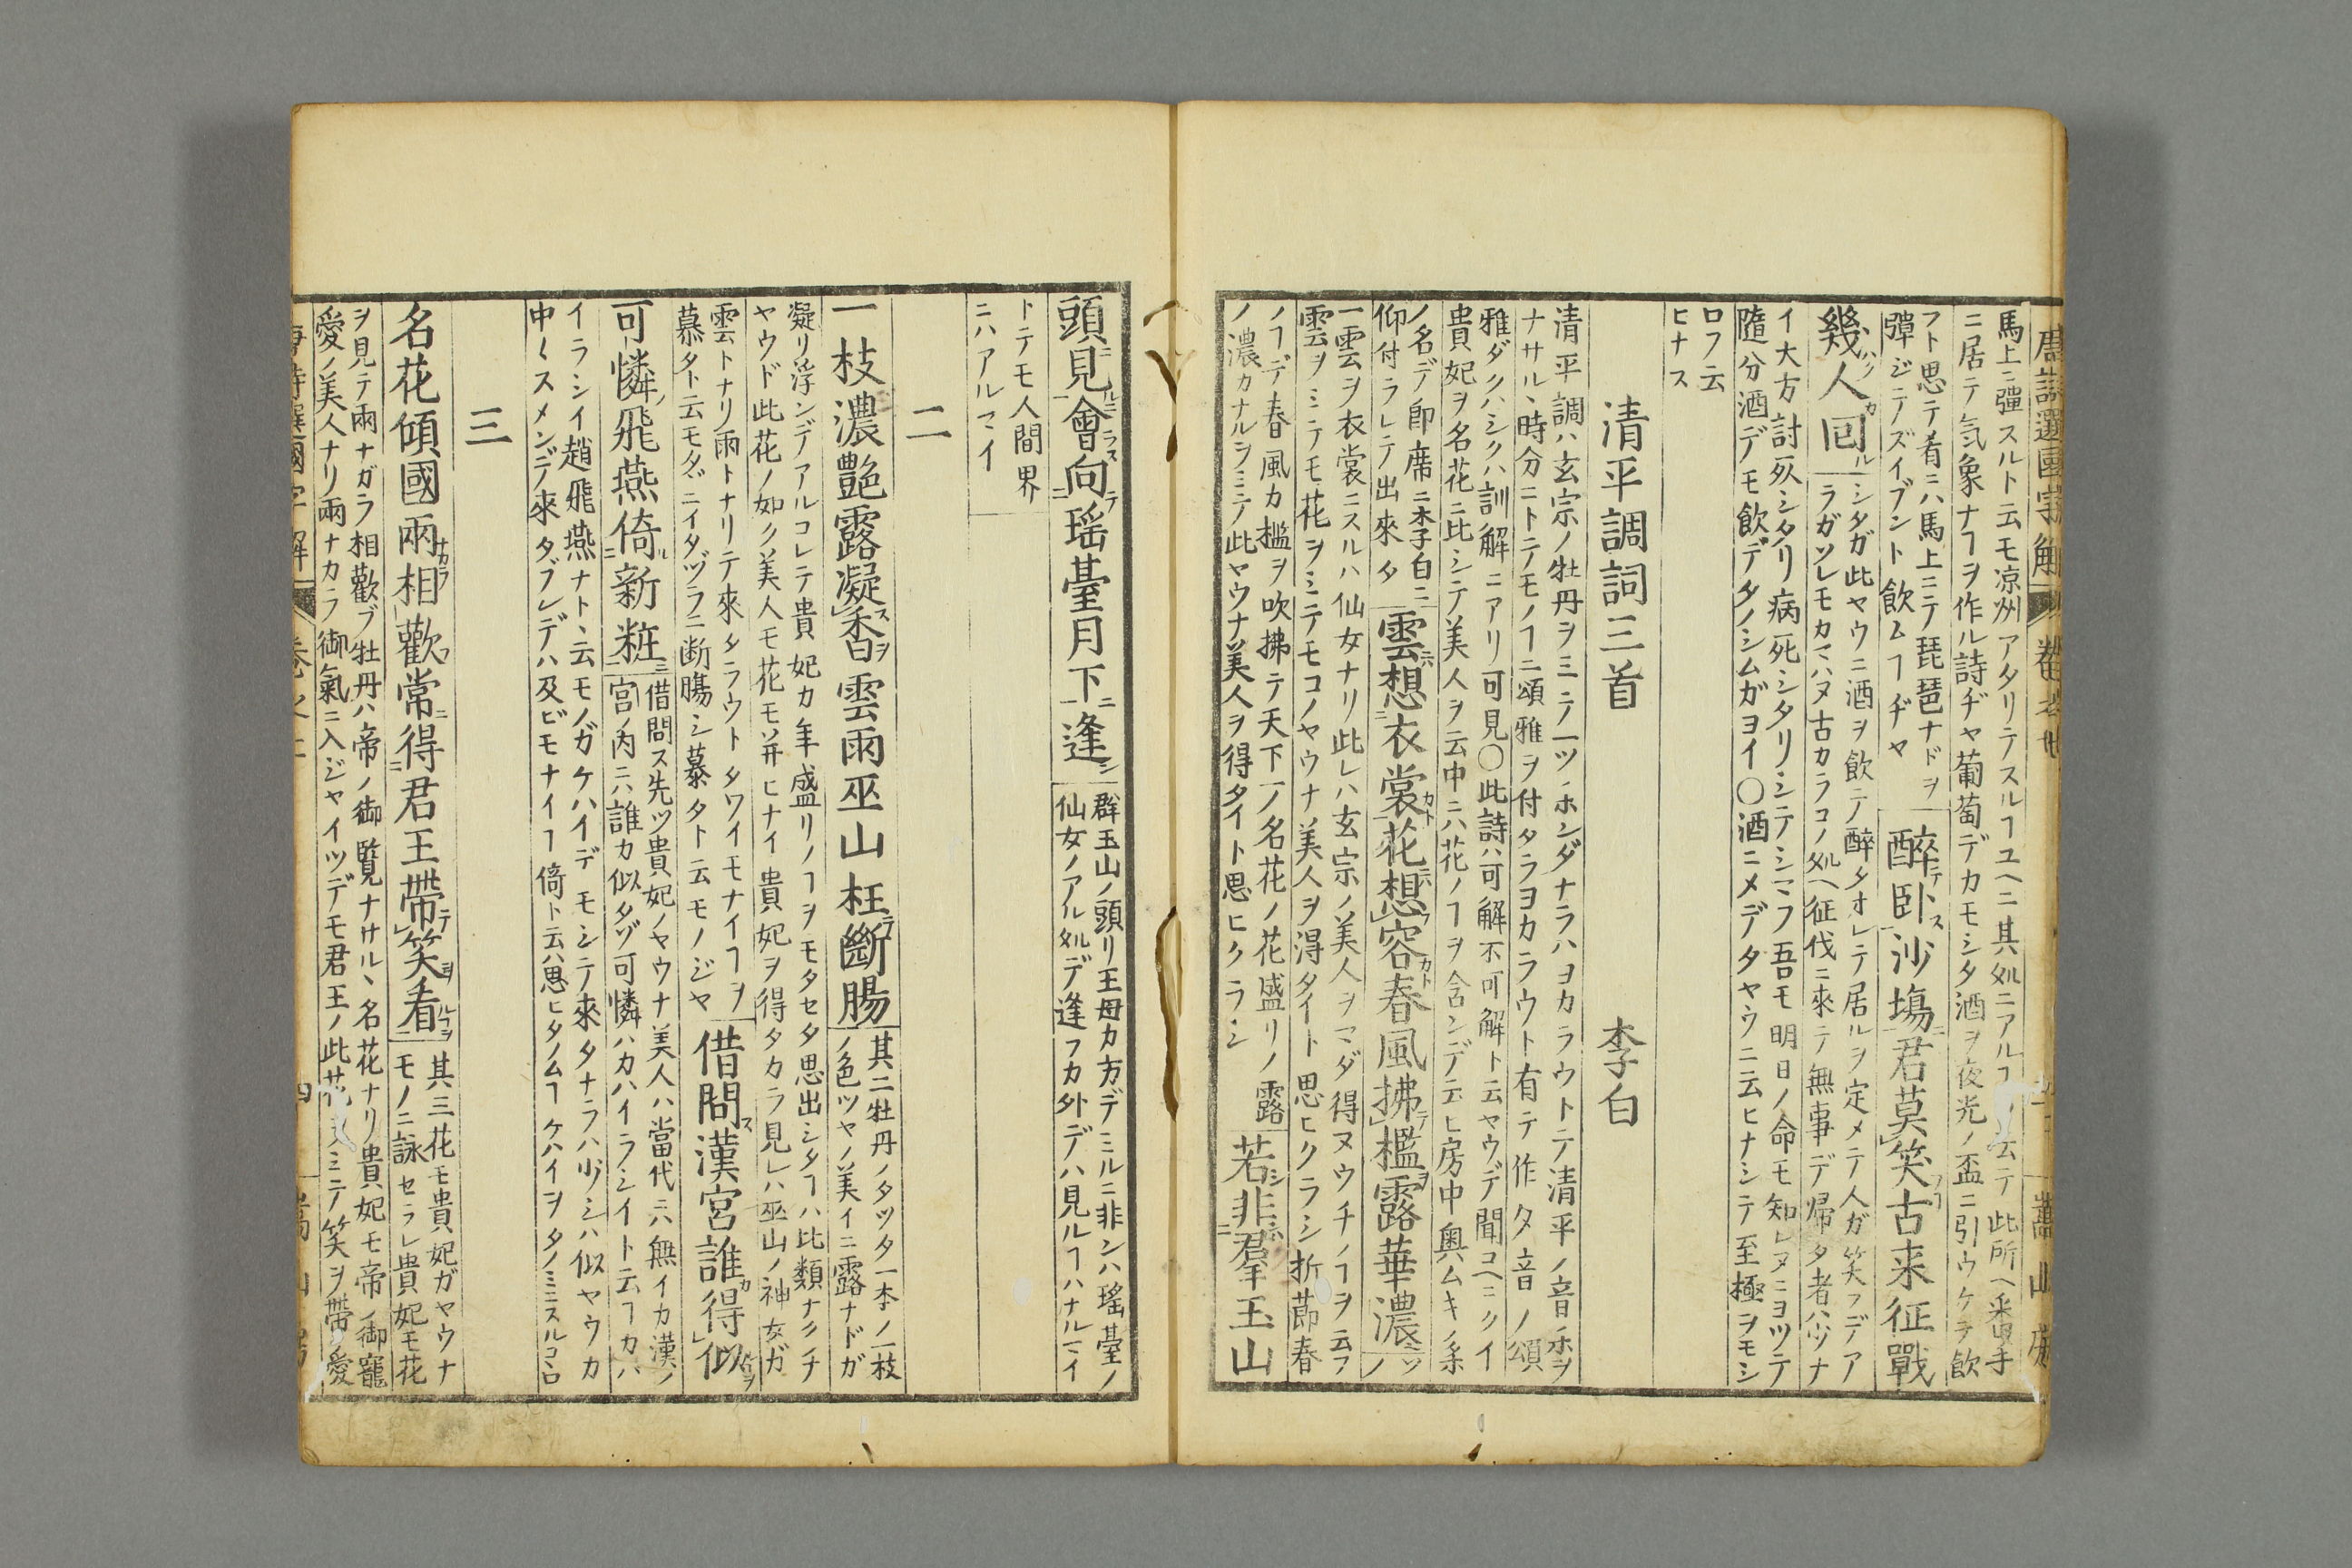 馬上ニ彈スルト云モ凉州アタリテスルヿユヘニ其処ニアルヿ
ニ居テ気象ナヿヲ作ル詩ヂヤ葡萄デカモシタ酒ヲ夜光ノ盃ニ引ウケテ飲
フト思テ肴ニハ馬上ニテ琵琶ナドヲ
彈ジテズイブント飲ムヿヂヤ
醉卧沙塲君莫笑古来征戰
幾人囘
シタガ此ヤウニ酒ヲ飲テ醉タオレテ居ルヲ定メテ人ガ笑フデア
ラガソレモカマハヌ古カラコノ処ヘ征伐ニ來テ無事デ帰タ者ハヅナ
イ大方討死シタリ病死シタリシテシマフ吾モ明日ノ命モ知レヌニヨツテ
隨分酒デモ飲デタノシムガヨイ〇酒ニメデタヤウニ云ヒナシテ至極ヲモシ
ロフ云
ヒナス
清平調詞三首 李白
清平調ハ玄宗ノ牡丹ヲミテ一ツホンダナラハヨカラウトテ清平ノ音ホヲ
ナサル、時分ニトニテモノヿニ頌雅ヲ付タラヨカラウト有テ作タ音ノ頌
雅ダクハシクハ訓解ニアリ可見〇此詩ハ可解不可解ト云ヤウデ聞コヘニクイ
貴妃ヲ名花ニ比シテ美人ヲ云中ニハ花ノヿヲ含ンデ云ヒ房中奥ムキノ采
ノ名デ即席ニ李白ニ
仰付ラレテ出來タ
雲想衣裳花想容春風拂檻露華濃
一雲ヲ衣裳ニスルハ仙女ナリ此レハ玄宗ノ美人ヲマダ得ヌウチノヿヲ云フ
雲ヲミテモ花ヲミテモコノヤウナ美人ヲ得タイト思ヒクラシ折節春
ノヿデ春風カ檻ヲ吹拂テ天下一ノ名花ノ花盛リノ露
ノ濃カナルヲミテ此ヤウナ美人ヲ得タイト思ヒクラシ
若非羣玉山
頭見會向瑶䑓月下逢
群玉山ノ頭リ王母カ方デミルニ非ンハ瑶䑓ノ
仙女ノアル処デ逢フカ外デハ見ルヿハナルマイ
トテモ人間界
ニハアルマイ
二
一枝濃艶露凝香雲雨巫山枉斷腸
其二牡丹ノタツタ一本ノ一枝
ノ色ツヤノ美イニ露ナドガ
凝リ浮ンデアルコレテ貴妃カ年盛リノヿヲモタセタ思出シタヿハ比類ナクチ
ヤウド此花ノ如ク美人モ花モ并ヒナイ貴妃ヲ得タカラ見レハ巫山ノ神女ガ
雲トナリ雨トナリテ來タラウトタワイモナイヿヲ
慕タト云モタヾニイタヅラニ断腸シ慕タト云モノジヤ
借問漢宮誰得似
可憐飛燕倚新粧
借問ス先ツ貴妃ノヤウナ美人ハ當代ニハ無イカ漢ノ
宮ノ内ニハ誰カ似タゾ可憐ハカハイラシイト云ヿカハ
イラシイ趙飛燕ナト、云モノガケハイデモシテ來タナラハ少シハ似ヤウカ
中〱スメンデ來タブレデハ及ビモナイヿ倚ト云ハ思ヒタノムヿケハイヲタノミニスルコヽロ
三
名花傾國兩相歡常得君王帶笑看
其三花モ貴妃ガヤウナ
モノニ詠セラレ貴妃モ花
ヲ見テ兩ナガラ相歡ブ牡丹ハ帝ノ御覧ナサル、名花ナリ貴妃モ帝ノ御寵
愛ノ美人ナリ兩ナカラ御氣ニ入ジヤイツデモ君王ノ此花ヲミテ笑ヲ帶ノ愛
唐詩選國字解 卷之七 四 嵩山房